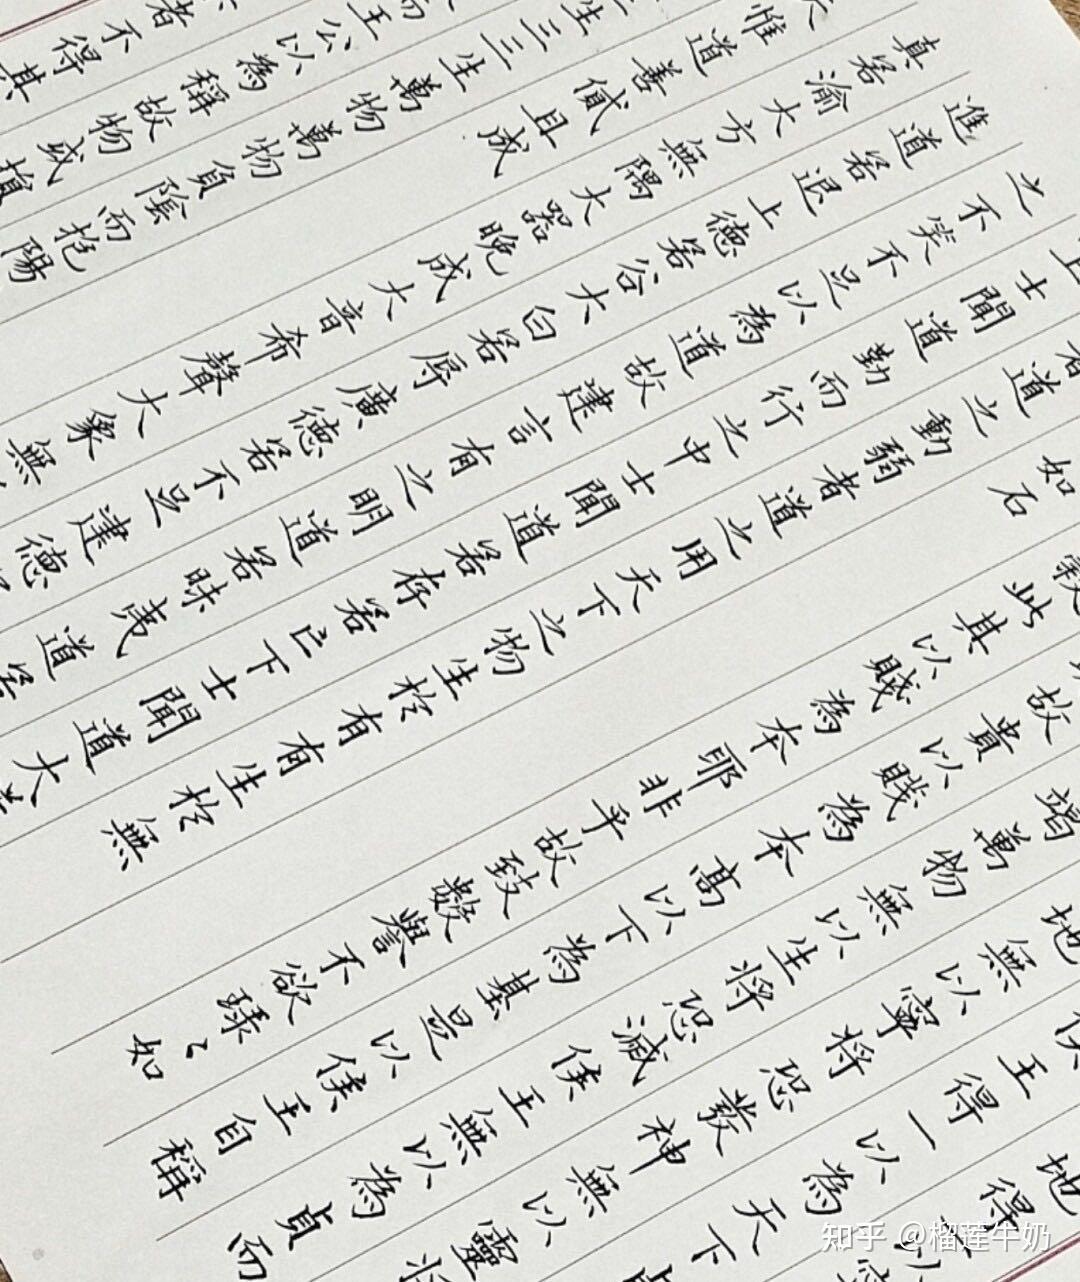 地得一以寧
侯王得一以為天下貞
地無以寧將恐發神無以靈將
竭萬物無以生將恐滅侯王無以為貞而
故貴以賤為本高以下為基是以侯王自稱
此其以賤為本耶非乎故致數譽不欲琭々如
如石
者道之動弱者道之用天下之物生於有有生於無
上士聞道勤而行之中士聞道若存若亡下士聞道大笑
之不笑不足以為道故建言有之明道若昧夷道若
進道若退上德若谷大白若辱廣德若不足建德若
真若渝大方無隅大器晚成大音希聲大象無
惟道善貸且成
生三三生萬物萬物負陰而抱陽
而王公以為稱故物或損
者不得其
知乎 @榴莲牛奶